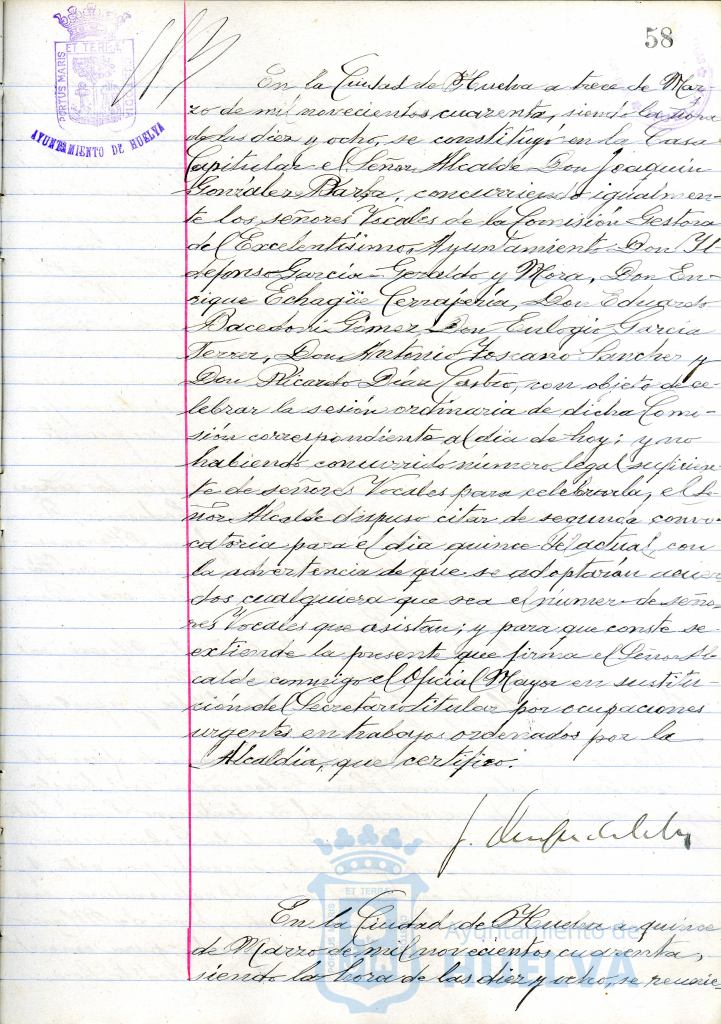 58
PORTUS MARIS
ET TERRAE
CUSTODIA
AYUNTAMIENTO DE HUELVA
En la Ciudad de Huelva a trece de Mar-
zo de mil novecientos cuarenta, siendo la hora
de las diez y ocho, se constituyó en la Casa
Capitular el Señor Alcalde Don Joaquín
González Barba, concurriendo igualmen-
te los señores Vocales de la Comisión Gestora
del Excelentísimo Ayuntamiento Don Il-
defonso García-Geraldo y Mora, Don En-
rique Echagüe Cerrajería, Don Eduardo
Gómez, Don Eulogio García
Ferrer, Don Antonio Toscano Sanchez y
Don Ricardo Díaz Castro, con objeto de ce-
lebrar la sesión ordinaria de dicha Comi-
sión correspondiente al dia de hoy; y no
habiendo concurrido número legal suficien-
te de señores Vocales para celebrarla, el Se-
ñor Alcalde dispuso citar de segunda convo-
catoria para el dia quince del actual, con
la advertencia de que se adoptarán acuer-
dos cualquiera que sea el número de seño-
res Vocales que asistan; y para que conste se
extiende la presente que firma el Señor Al-
calde conmigo el Oficial Mayor en sustitu-
ción del Secretario titular por ocupaciones
urgentes en trabajos ordenados por la
Alcaldía, que certifico.
En la Ciudad de Huelva a quince
de Marzo de mil novecientos cuarenta,
siendo la hora de las diez y ocho, se reunie-
Ayuntamiento de
HUELVA